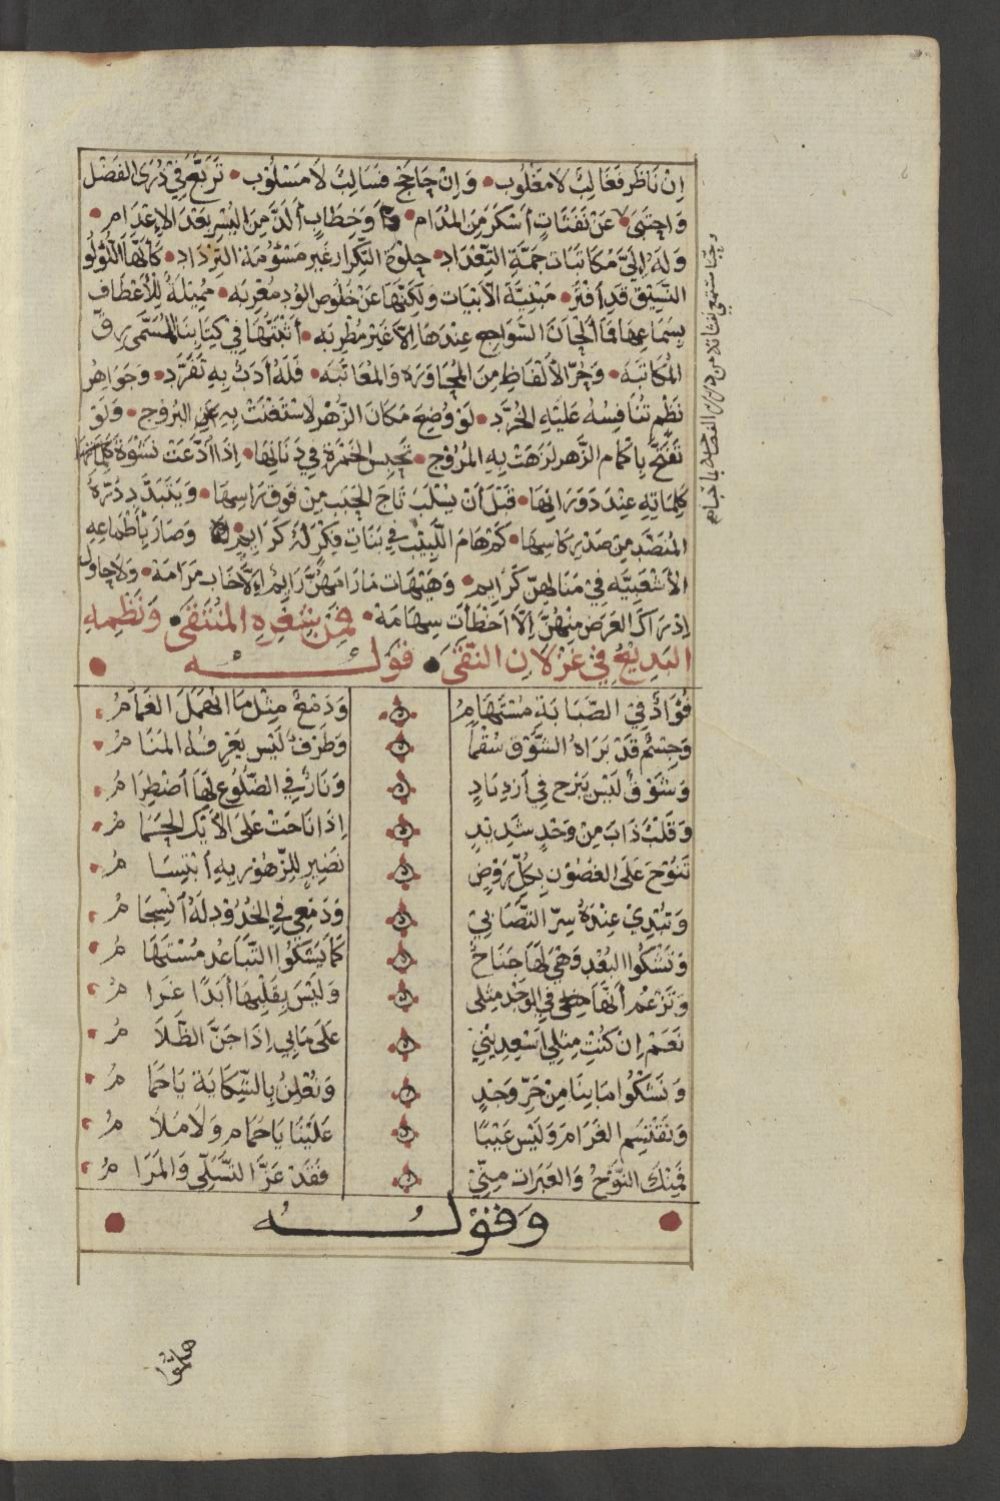 اِنْ نَاظَرَ فَغَالِبٌ لَا مَغْلُوب • وَاِنْ جَاجَحَ فَسَالِبٌ لَا مَسْلُوْب • تَرَبَّعَ فِيْ ذُرَى الفَضْل
وَاجْتَبَى عَنْ نَفَثَاتٍ أَسْكَرَ مِنَ المُدَام • وَخِطَابٍ أَلَذَّ مِنَ اليُسْرِ بَعْدَ الاِعْدَام •
وَلَهُ اِلَيَّ مُكَاتَبَات جَمَّةِ التَّعْدَاد • حِلْوَة التِّكْرار غَيْر مَشْؤُمَة التَّرْدَاد • كَأَنَّهَا اللُّؤْلُؤُ
النَّسِيْق قَدِ أَفْتَرّ • مَبْنِيَّة الأَبْيَات وَلَكِنَّهَا عَنْ خُلُوصِ الوُدِ مُعْرِبَه • مُمِيْلَةُ لِلْأَعْطَاف
بِسَمَاعِهَا فَمَا أَلْحَانُ السَّوَاجِع عِنْدَهَا اِلَّا غَيْر مُطْرِبَه • أَثْبَتُّهَا فِيْ كِتَابِنَا المُسَمَّى بِرِقِّ
المُكَاتَبَه • وَحُرِّ الأَلْفَاظِ مِنَ المُحَاوَرَة وَالمُعَاتَبَه • فَلَهُ أَدَبٌ بِهِ تَفَرَّد • وَجَوَاهِرُ
نَظْمٍ تُنَافِسُهُ عَلَيْهِ الخُرَّد • لَوْ وُضِعَ مَكَانَ الزُّهْرِ لَاسْتَغْنَتْ بِهِ عَنِ البُرُوج • وَلَوْ
تَفَتَّحَ بِأَكْمَامِ الزَّهرِ لَزَهَتْ بِهِ المُرُوْج • تَحْبِسُ الخَمْرَة فِيْ دَنَانِهَا • اِذَا ادَّعَتْ نَشْوَةَ
كَلِمَاتِهِ عِنْدَ دَوَرَانِهَا • قَبْلَ أَنْ يُسْلَبَ تَاجَ الحَبَبِ مِنْ فَوقِ رَاسِهَا • وَيَتَبَدَّد دُرَّهُ
المُنَضَّد مِن صَدْرِ كَاسِهَا • كَمْ هَامَ اللَّبِيْبُ فِي بَنَاتِ فِكْرٍ لَهُ كَرَايِم • وَصَارَ بِأَطْمَاعِهِ
الأَشْعَبِيَّه فِيْ مَنَالِهِنّ كَرَايِم • وَهَيْهَات مَا رَامَهُنَّ رَايِمٌ اِلَّا خَابَ مَرَامَهْ • وَلَا حَاوَلَ
اِدْرَاكَ الغَرَضِ مِنْهُنَّ اِلَّا اَخْطَأَتْ سِهَامَهْ • فَمِنْ شِعْرِهِ المُنْتَقَى • وَنَظْمِهِ
البَدِيْعِ فِيْ غَزْلَانِ النَّقَى • قَولُـــهُ •
فُؤَادٌ فِيْ الصَّبَابَةِ مُسْتَهَامُ وَدَمْعٌ مِثْلَ مَا انْهَمَلَ الغَمَامُ
وَجِسْمٌ قَدْ بَرَاهُ الشَّوْقُ سُقْمًا وَطَرْفٌ لَيْسَ يَعْرِفُهُ المَنَا مُ
وَشَوْقٌ لَيْسَ يَبْرَح فِي اَزْدِيَادٍ وَنَارٌ فِي الضُّلُوعِ لَهَا اضْطِرَا مُ
وَقَلْبٌ ذَابَ مِنْ وَجْدٍ شَدِيْدٍ اِذَا نَاحَتْ عَلَى الأَيْكِ الحَمَا مُ
تَنُوْحَ عَلَى الغُصُوْنِ بِكُلِّ رَوْضٍ نَضِيْرٍ لِلزُّهُوْرِ بِهِ أبْتِسَا مُ
وَتُبْدِيْ عِنْدَهُ سِرَّ التَّصَابِيْ وَدَمْعِي فِي الخُدُوْدِ لَهُ أنْسِجَا مُ
وَتَشْكُوا البُعْدِ وَهْيَ لَهَا جَنَاحٌ كَمَا يَشْكُوا التَّبَاعُدَ مُسْتَهَا مُ
وَتَزْعُم أَنَّهَا فِي الوَجْدِ مِثْلِى وَلَيْسَ بِقَلْبِهَا أبَدًا غَرَا مُ
نَعَمْ اِنْ كُنْتِ مِثْلِي اَسْعِدِيْنِيْ عَلَى مَا بِي اِذَا جَنَّ الظَّلَا مُ
وَنَشْكُوا مَا بِنَا مِنْ حَرِّ وَجْدٍ وَنُعْلِنُ بِالشِّكَايَة يَا حَمَا مُ
وَنَقْتَسِم الغَرَامَ وَلَيْسَ عَيْبًا عَلَيْنَا يَا حَمَام وَلَا مَلَا مُ
فَمِنْكَ النَّوْحُ وَالعَبَرَات مِنِّيْ فَقَدْ عَزَّ التَّسَلِّي وَالمَرَا مُ
• وَقَوْلُـــهُ •